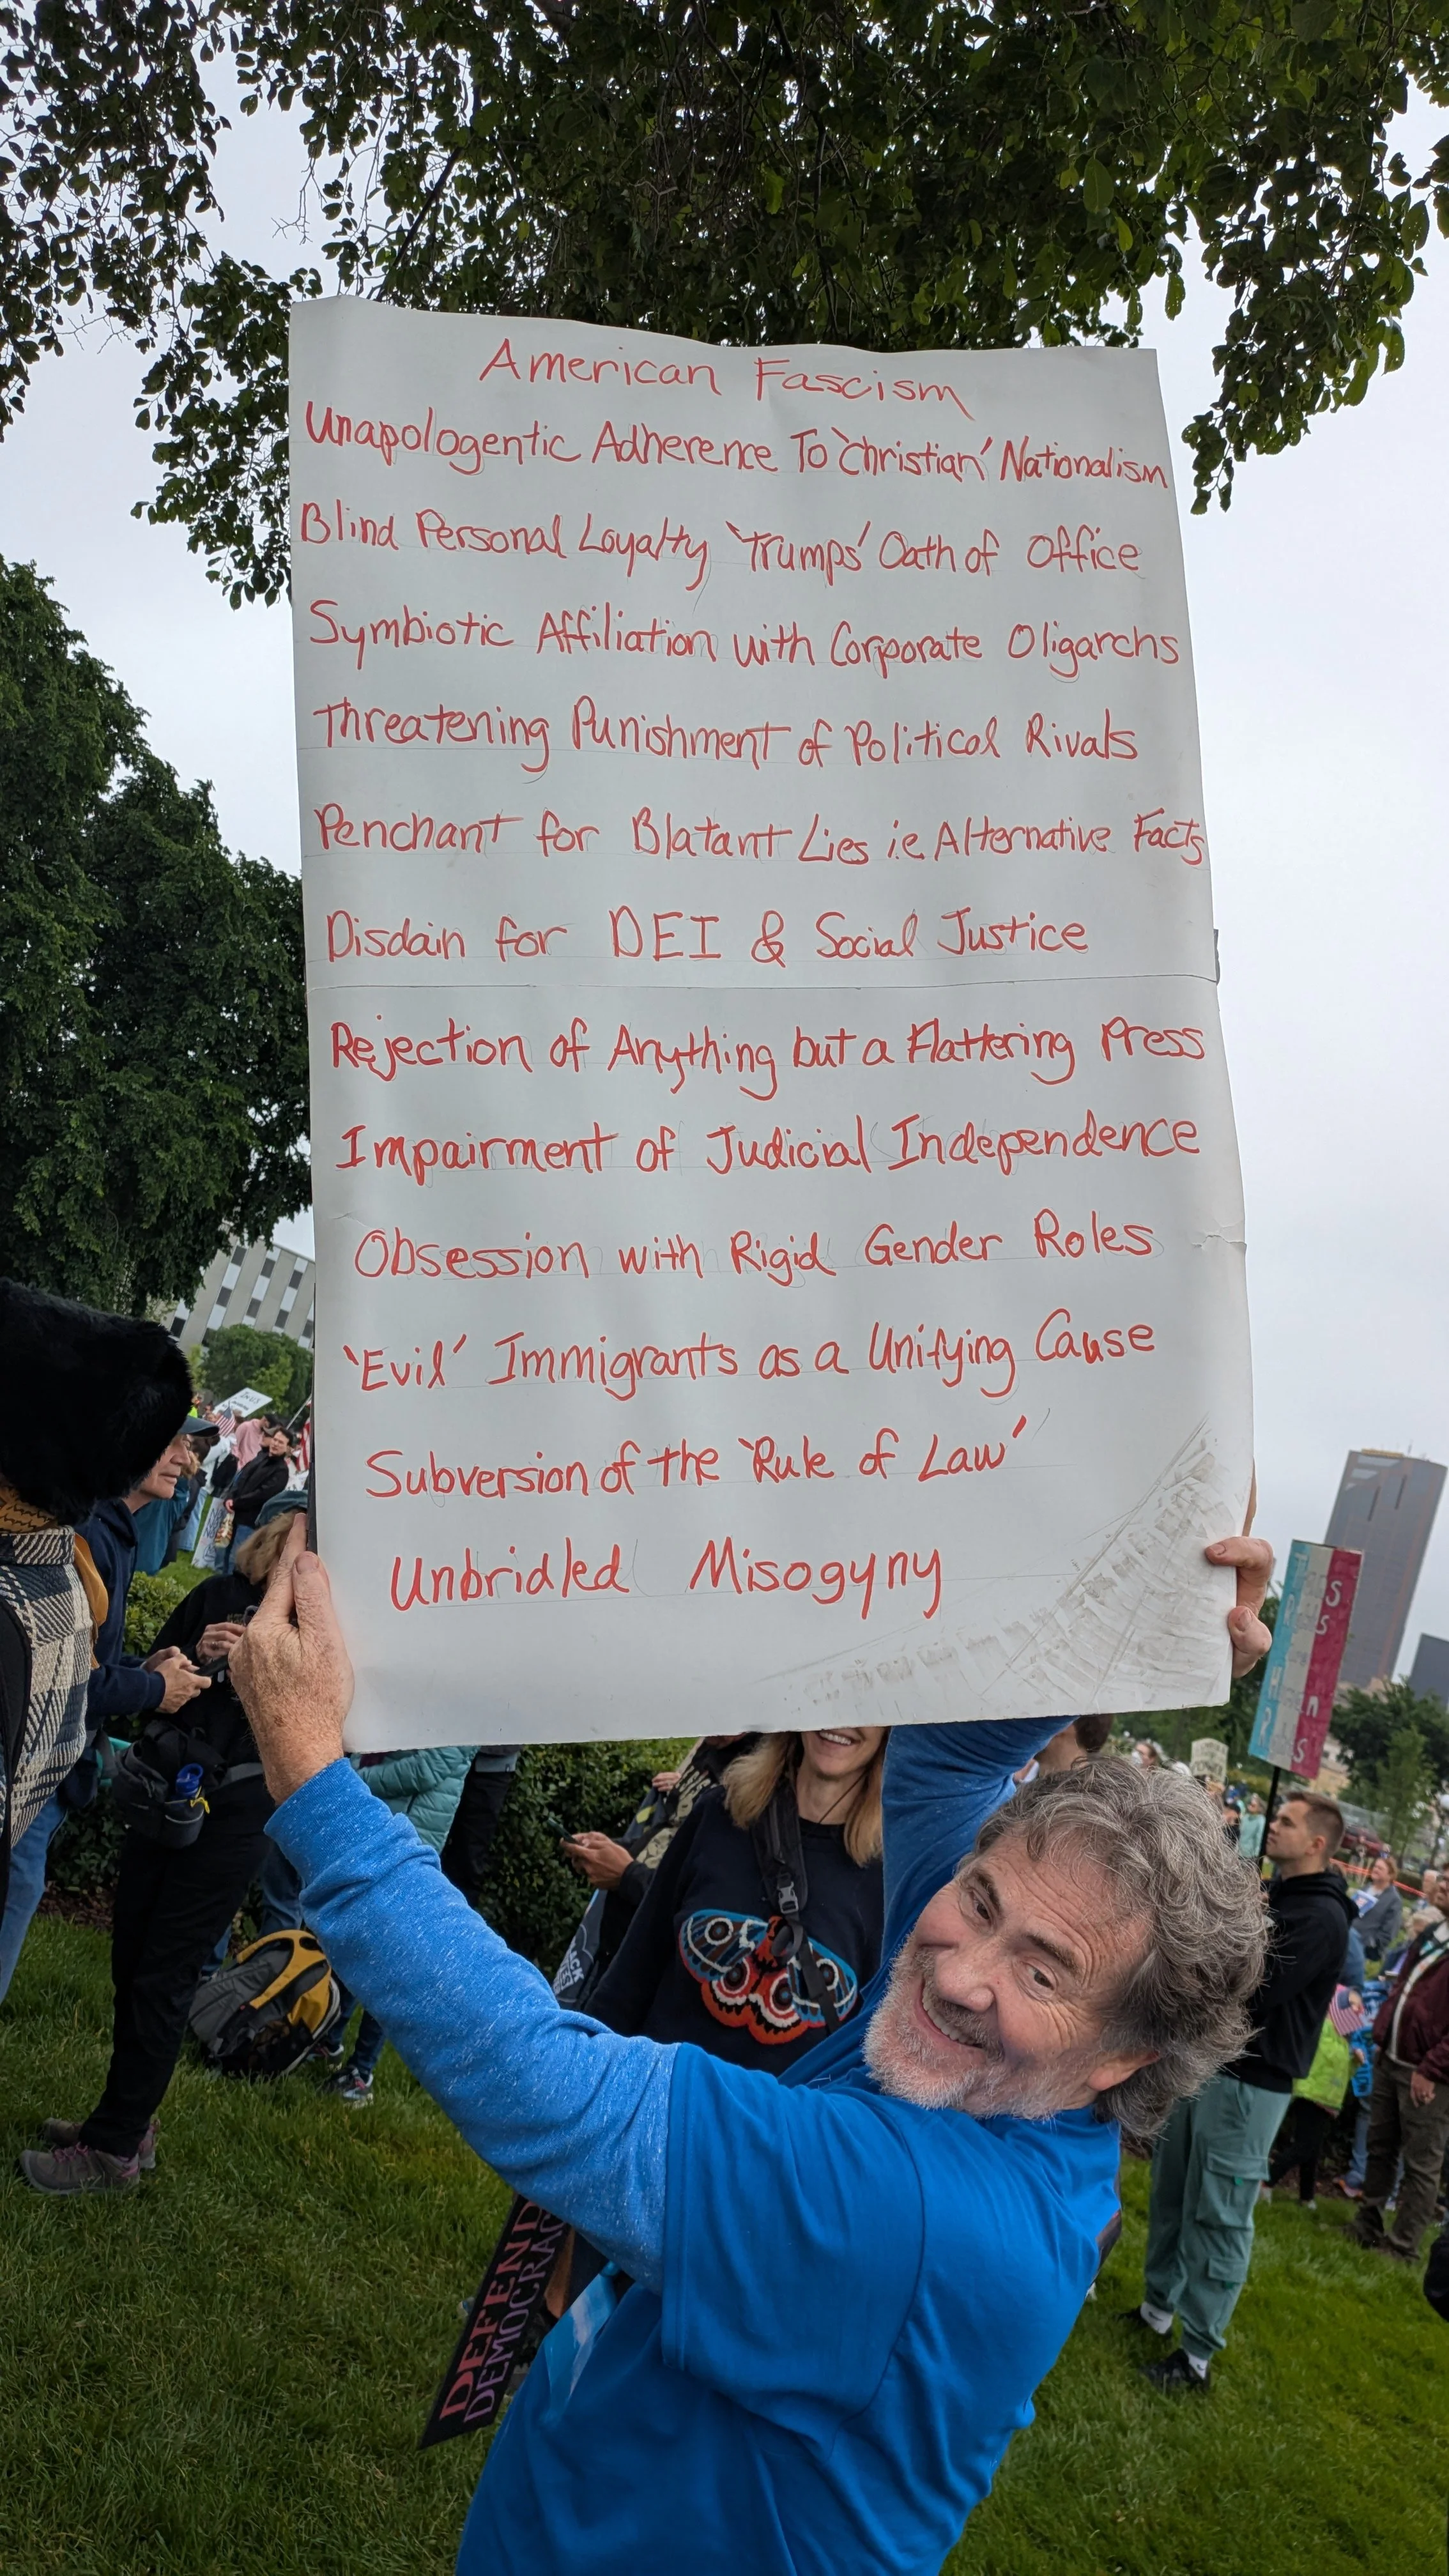 American Fascism
Unapologentic Adherence To 'Christian' Nationalism
Blind Personal Loyalty 'Trumps' Oath of Office
Symbiotic Affiliation with Corporate Oligarchs
Threatening Punishment of Political Rivals
Penchant for Blatant Lies i.e Alternative Facts
Disdain for DEI & Social Justice
Rejection of Anything but a Flattering Press
Impairment of Judicial Independence
Obsession with Rigid Gender Roles
'Evil' Immigrants as a Unifying Cause
Subversion of the 'Rule of Law'
Unbridled Misogyny
DEFEND
DEMOCRAC